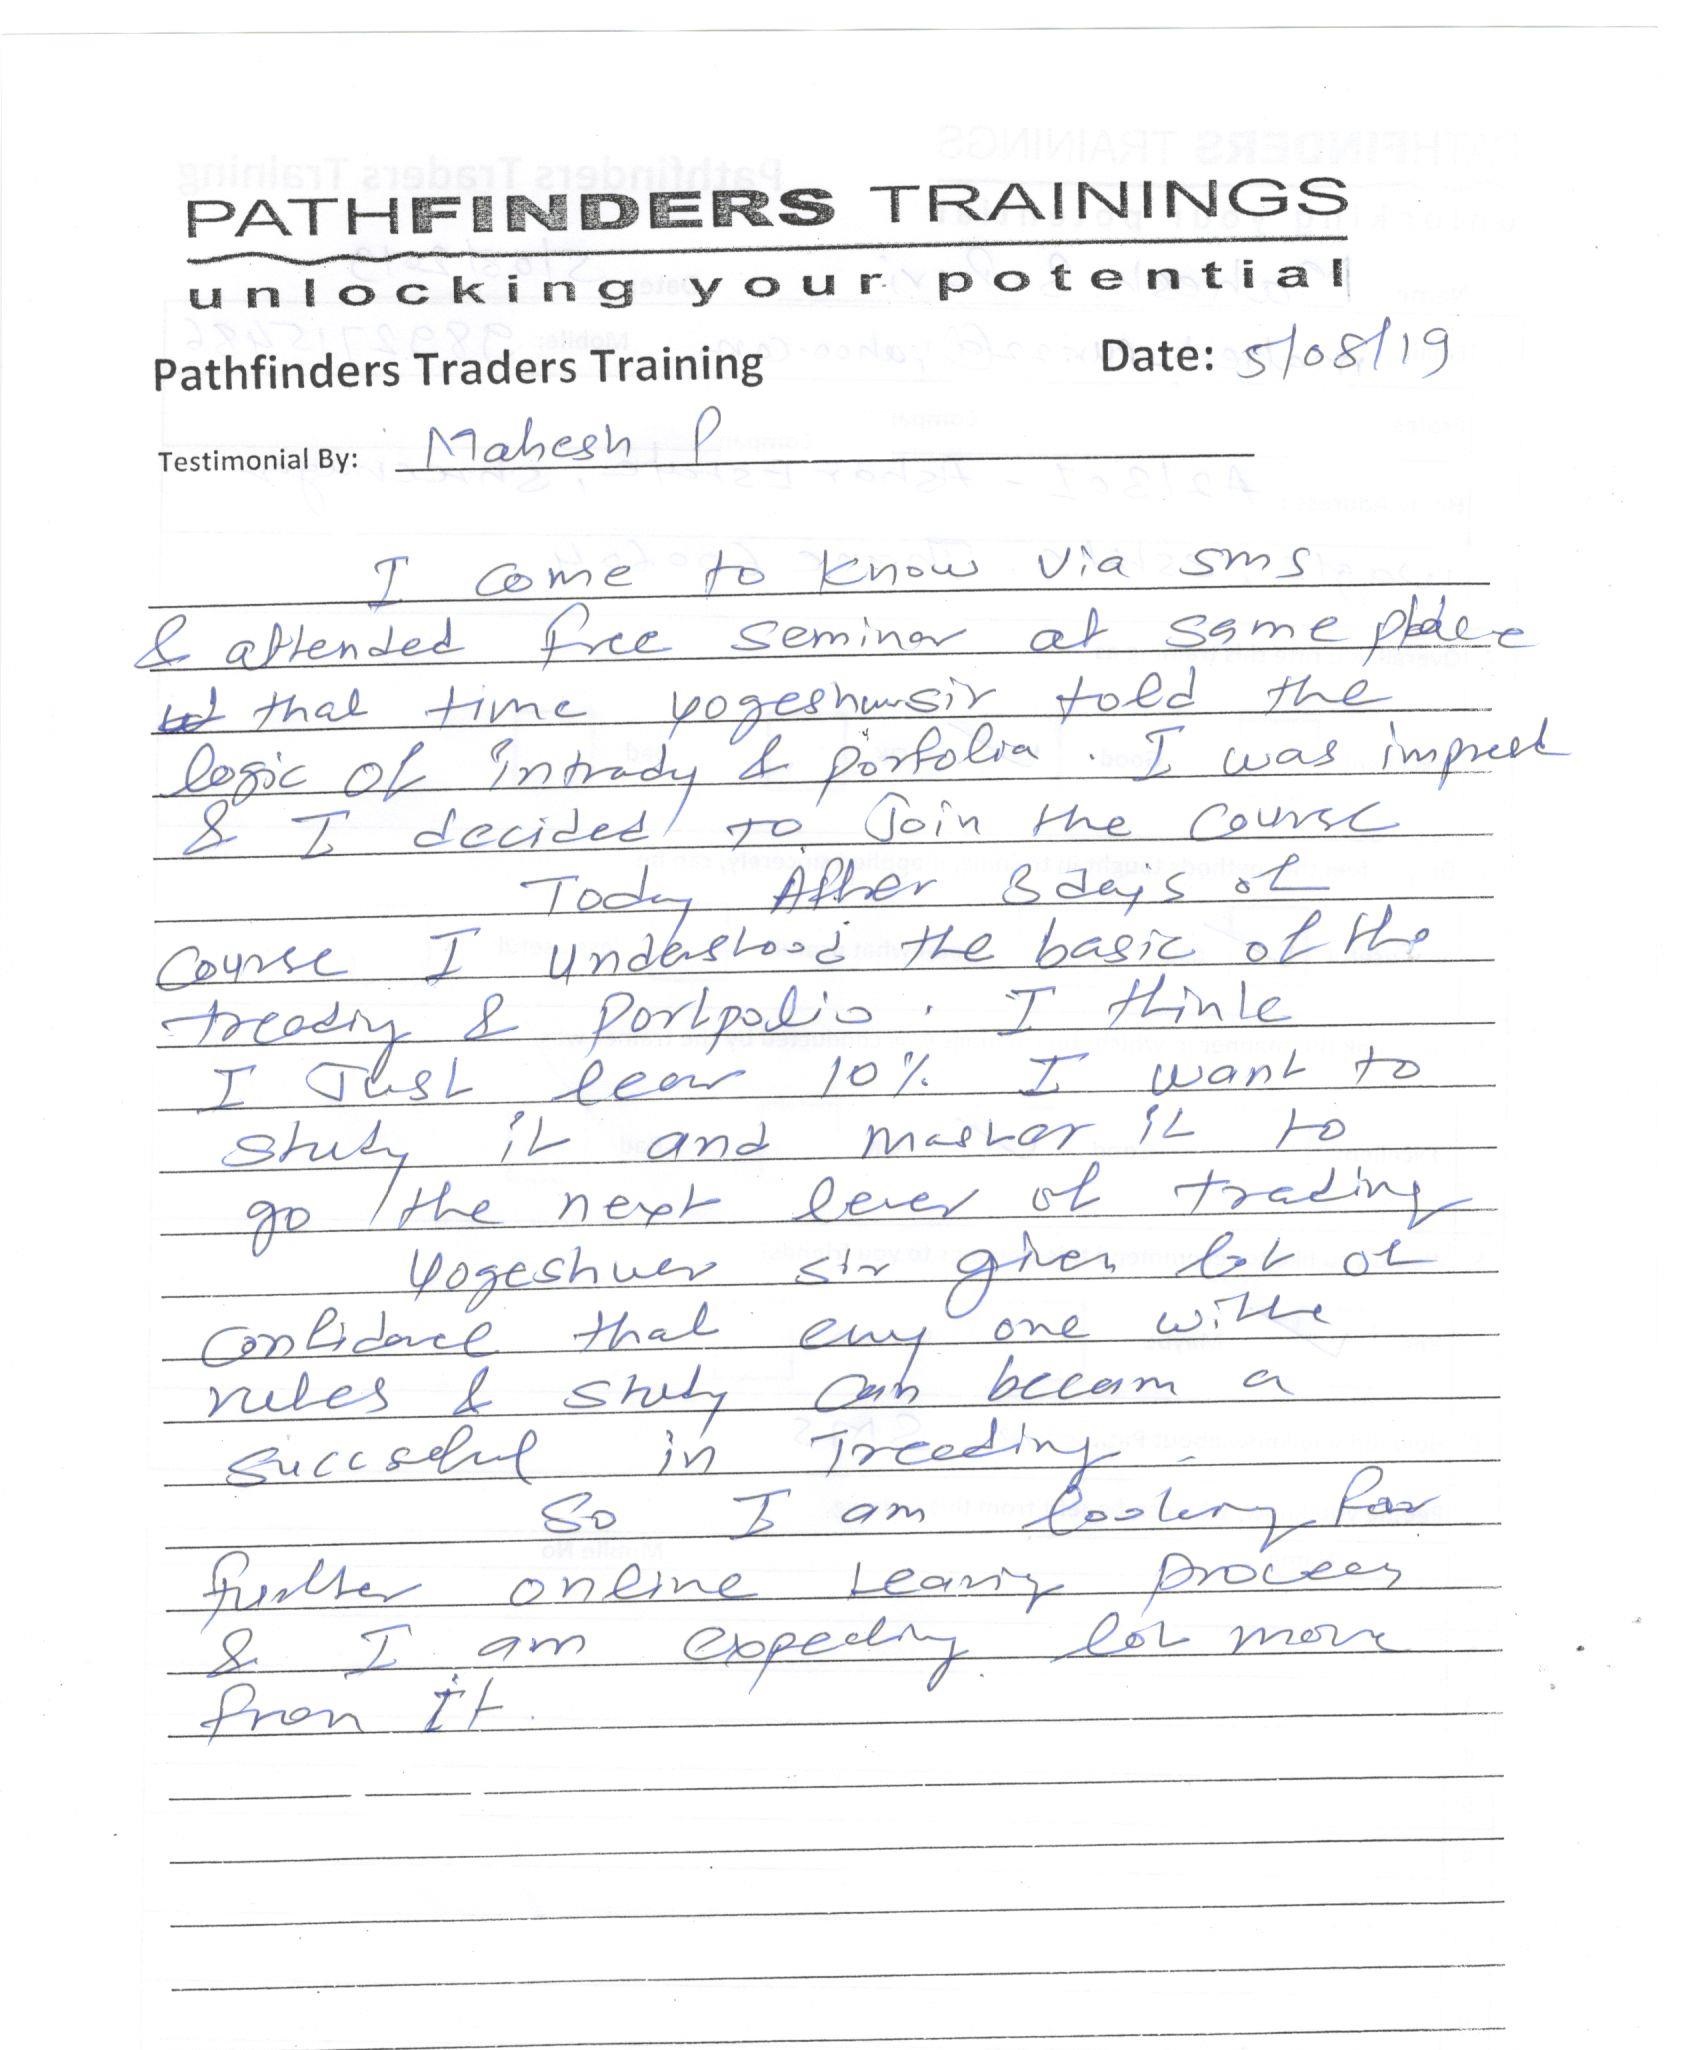 PATHFINDERS TRAININGS
unlocking your potential
Pathfinders Traders Training Date: 5/08/19
Testimonial By: Mahesh P
I come to know via sms
& attended free seminar at same place
that time yogeshwsir told the
logic of intrady & porfolia. I was imprest
& I decided to Join the course
Today After 3 days of
course I understood the basic of the
treading & Portpolio. I think
I Just lear 10% I want to
study it and master it to
go the next lever of trading
Yogeshwer sir given lot of
confidance that eny one with
rules & study can becom a
succseful in Treeding.
So I am looking for
further online Learnig process
& I am expecting lot more
from it.